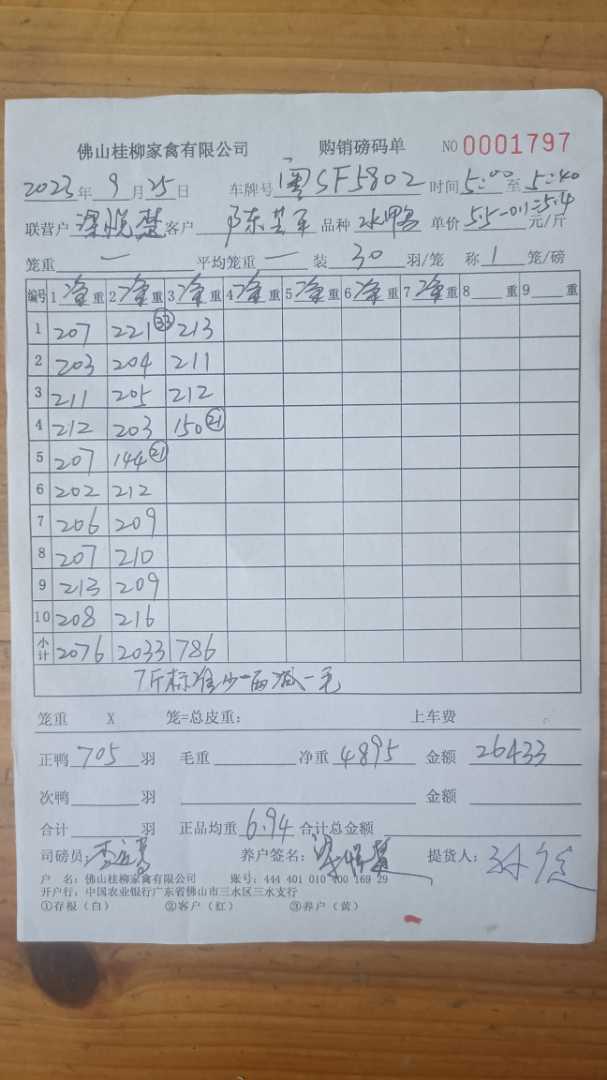 佛山桂柳家禽有限公司 购销磅码单 NO 0001797
2023年9月25日 车牌号 粤SF5802 时间 5:00 至 5:40
联营户 梁悦楚 客户 陈芝军 品种 水鸭 单价 5.5-0.1=5.4 元/斤
笼重 一 平均笼重 一 装 30 羽/笼 称 1 笼/磅
编号 1 净重 2 净重 3 净重 4 净重 5 净重 6 净重 7 净重 8 重 9 重
1 207 221 33 213
2 203 204 211
3 211 205 212
4 212 203 150 21
5 207 144 21
6 202 212
7 206 209
8 207 210
9 213 209
10 208 216
小计 2076 2033 786
7斤标准少一两减一毛
笼重 X 笼=总皮重: 上车费
正鸭 705 羽 毛重 净重 4895 金额 26433
次鸭 羽 金额
合计 羽 正品均重 6.94 合计总金额
司磅员: 养户签名: 提货人:
户 名: 佛山桂柳家禽有限公司 账号: 444 401 010 400 169 29
开户行: 中国农业银行广东省佛山市三水区三水支行
①存根(白) ②客户(红) ③养户(黄)